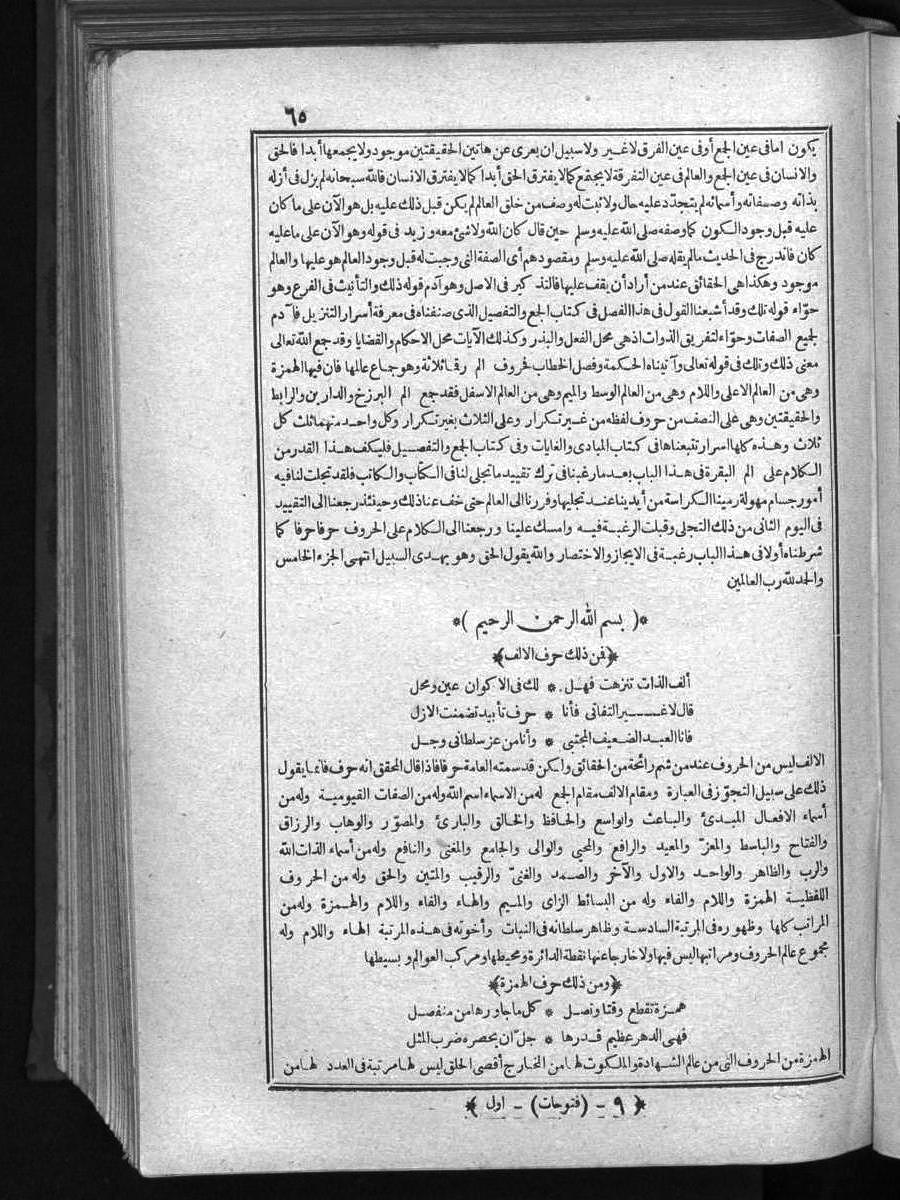 ٦٥
يكون اما فى عين الجمع أو فى عين الفرق لا غير ولا سبيل ان يعرى عن هاتين الحقيقتين موجود ولا يجمعهما أبدا فالحق
والانسان فى عين الجمع والعالم فى عين التفرقة لا يجتمع كما لا يفترق الحق أبدا كما لا يفترق الانسان فالله سبحانه لم يزل فى أزله
بذاته وصفاته وأسمائه لم يتجدد عليه حال ولا ثبت له وصف من خلق العالم لم يكن قبل ذلك عليه بل هو الآن على ما كان
عليه قبل وجود الكون كما وصفه صلى الله عليه وسلم حين قال كان الله ولا شئ معه وزيد فى قوله وهو الآن على ما عليه
كان فاندرج فى الحديث ما لم يقله صلى الله عليه وسلم ومقصودهم أى الصفة التى وجبت له قبل وجود العالم هو عليها والعالم
موجود وهكذا هى الحقائق عند من أراد أن يقف عليها فالتذكير فى الاصل وهو آدم قوله ذلك والتأنيث فى الفرع وهو
حوّاء قوله تلك وقد أشبعنا القول فى هذا الفصل فى كتاب الجمع والتفصيل الذى صنفناه فى معرفة أسرار التنزيل فآدم
لجميع الصفات وحوّاء لتفريق الذوات اذ هى محل الفعل والبذر وكذلك الآيات محل الاحكام والقضايا وقد جمع الله تعالى
معنى ذلك وتلك فى قوله تعالى وآتيناه الحكمة وفصل الخطاب فحروف الم رقما ثلاثة وهو جماع عالمها فان فيها الهمزة
وهى من العالم الاعلى واللام وهى من العالم الوسط والميم وهى من العالم الاسفل فقد جمع الم البرزخ والدارين والرابط
والحقيقتين وهى على النصف من حروف لفظه من غير تكرار وعلى الثلاث بغير تكرار وكل واحد منهما ثلث كل
ثلاث وهذه كلها اسرار تتبعناها فى كتاب المبادى والغايات وفى كتاب الجمع والتفصيل فليكف هذا القدر من
الكلام على الم البقرة فى هذا الباب بعد ما رغبنا فى ترك تقييد ما تجلى لنا فى الكتاب والكاتب فلقد تجلت لنا فيه
أمور جسام مهولة رمينا الكراسة من أيدينا عند تجليها وفررنا الى العالم حتى خف عنا ذلك وحينئذ رجعنا الى التقييد
فى اليوم الثانى من ذلك التجلى وقبلت الرغبة فيه وامسك علينا ورجعنا الى الكلام على الحروف حرفا حرفا كما
شرطناه أولا فى هذا الباب رغبة فى الايجاز والاختصار والله يقول الحق وهو يهدى السبيل انتهى الجزء الخامس
والحمد لله رب العالمين
*( بسم الله الرحمن الرحيم )*
﴿فمن ذلك حرف الالف﴾
ألف الذات تنزهت فهل * لك فى الاكوان عين ومحل
قال لا غير التفاتى فأنا * حرف تأبيد تضمنت الازل
فانا العبد الضعيف المجتبى * وأنا من عز سلطانى وجل
الالف ليس من الحروف عند من شم رائحة من الحقائق ولكن قد سمته العامة حرفا فاذا قال المحقق انه حرف فانما يقول
ذلك على سبيل التجوّز فى العبارة ومقام الالف مقام الجمع له من الاسماء اسم الله وله من الصفات القيومية وله من
أسماء الافعال المبدئ والباعث والواسع والحافظ والخالق والبارئ والمصوّر والوهاب والرزاق
والفتاح والباسط والمعزّ والمعيد والرافع والمحيى والوالى والجامع والمغنى والنافع وله من أسماء الذات الله
والرب والظاهر والواحد والاول والآخر والصمد والغنىّ والرقيب والمتين والحق وله من الحروف
اللفظية الهمزة واللام والفاء وله من البسائط الزاى والميم والهاء والفاء واللام والهمزة وله من
المراتب كلها وظهوره فى المرتبة السادسة وظاهر سلطانه فى النبات وأخوته فى هذه المرتبة الهاء واللام وله
مجموع عالم الحروف ومراتبها ليس فيها ولا خارجا عنها نقطة الدائرة ومحيطها ومركب العوالم وبسيطها
﴿ومن ذلك حرف الهمزة﴾
همزة تقطع وقتا وتصل * كل ما جاورها من منفصل
فهى الدهر عظيم قدرها * جلّ ان يحصره ضرب المثل
الهمزة من الحروف التى من عالم الشهادة والملكوت لها من المخارج أقصى الحلق ليس لها مرتبة فى العدد لها من
﴿ ٩ - (فتوحات) - اول ﴾